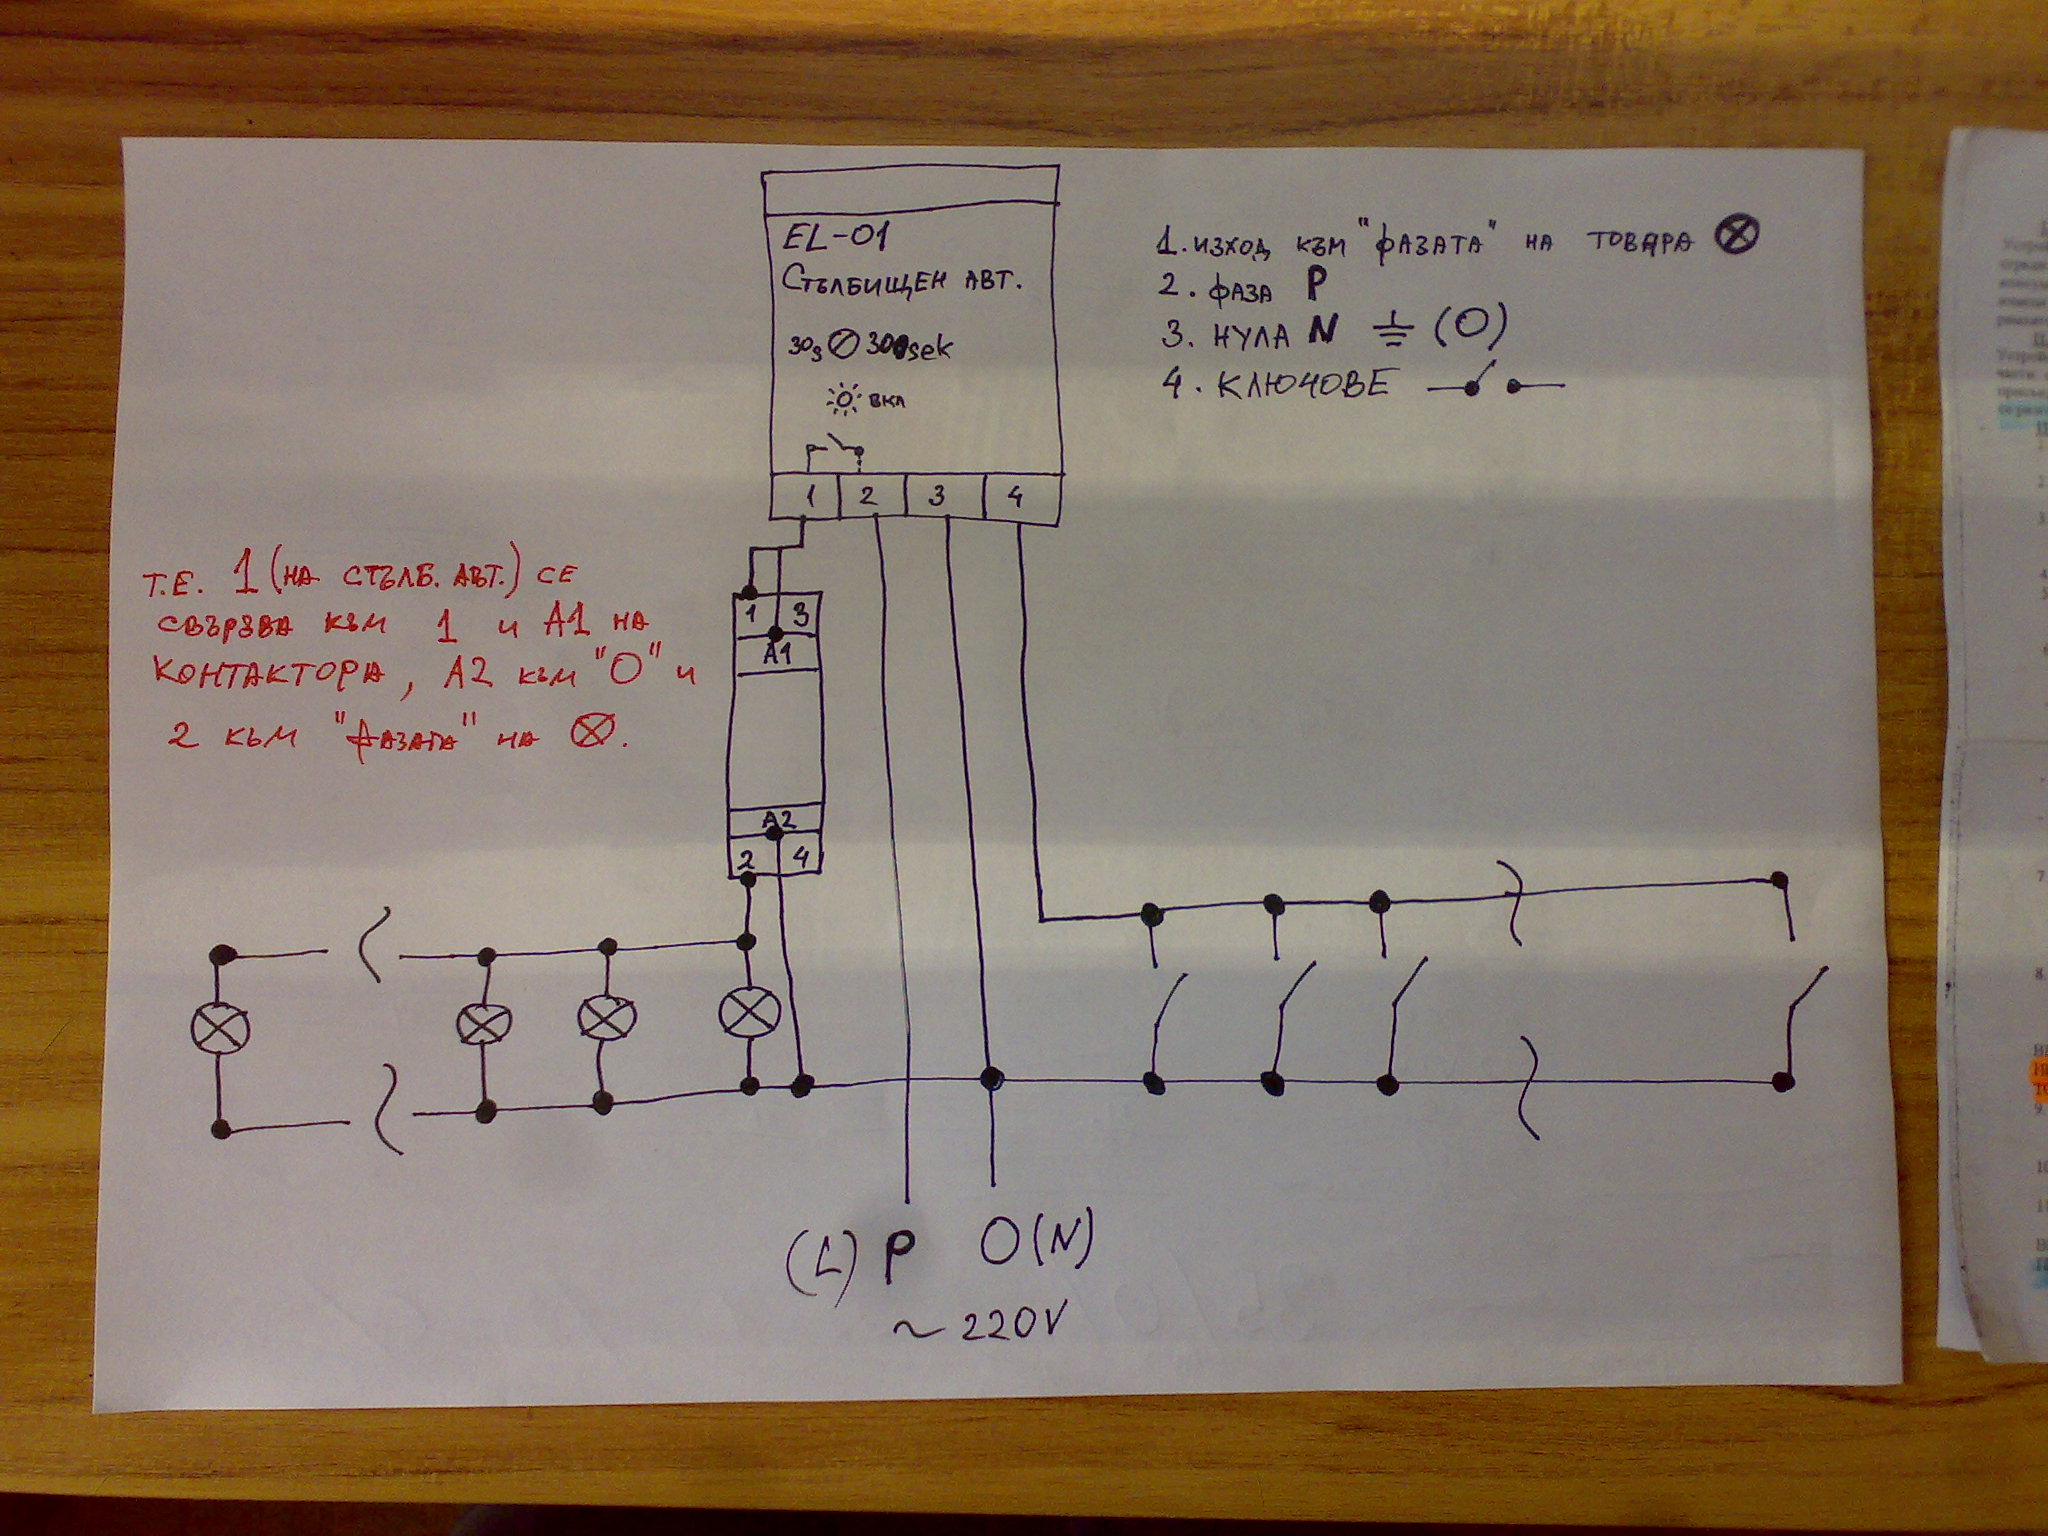 EL-01
СТЪЛБИЩЕН АВТ.
30s 300sek
ВКЛ
1 2 3 4
1. ИЗХОД КЪМ "ФАЗАТА" НА ТОВАРА
2. ФАЗА P
3. НУЛА N (O)
4. КЛЮЧОВЕ
Т.Е. 1 (НА СТЪЛБ. АВТ.) СЕ
СВЪРЗВА КЪМ 1 И А1 НА
КОНТАКТОРА, А2 КЪМ "О" И
2 КЪМ "ФАЗАТА" НА .
1 3
A1
A2
2 4
(L) P O(N)
~220V